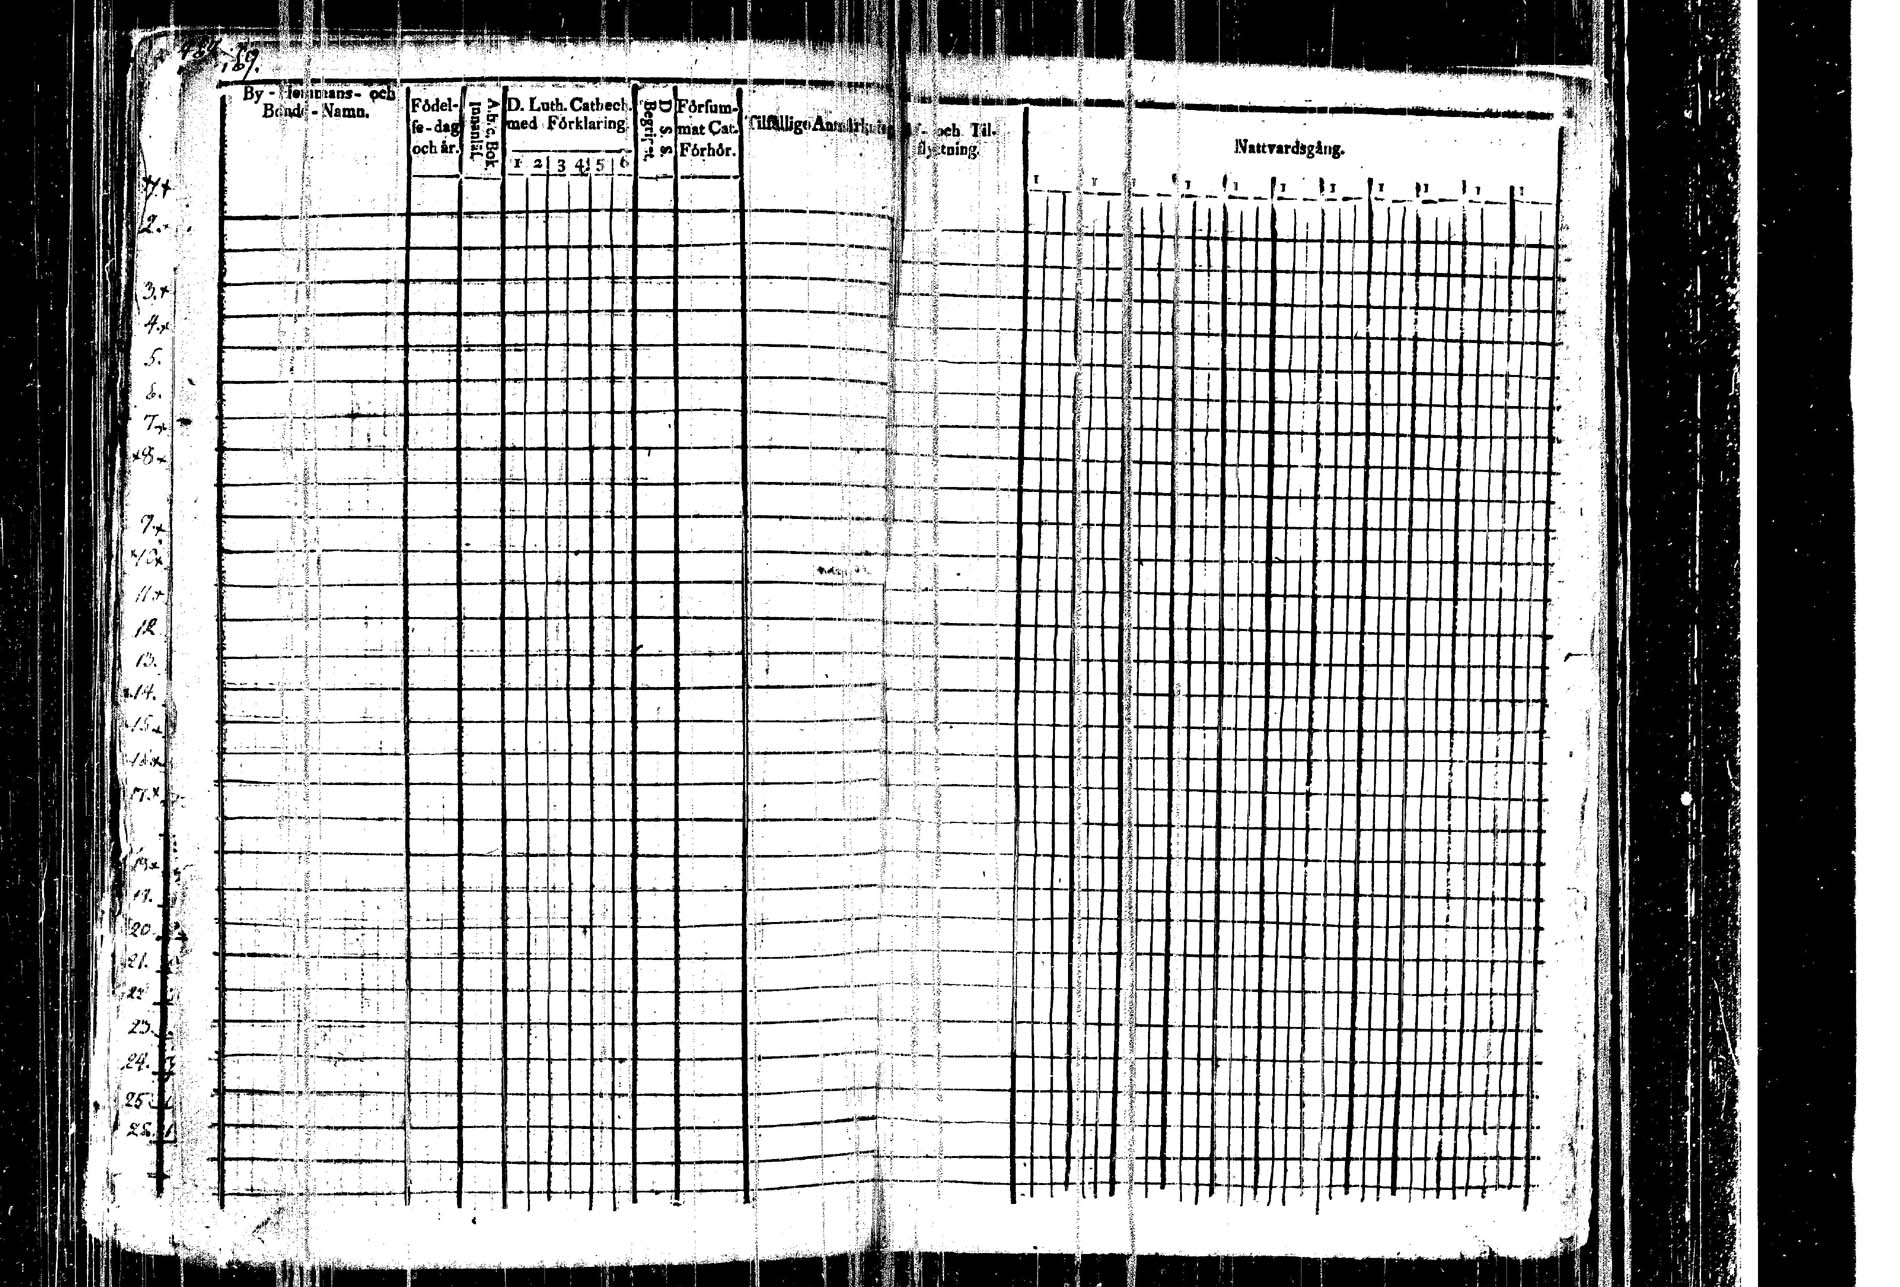 189.
By - Hemmans- och
Bonde - Namn.
Födel-
se-dag
och år.
A.b.c. Bok
innantil.
D. Luth. Cathech.
med Förklaring.
1 2 3 4 5 6
D. S. S.
Begrepet.
Försum-
mat Cat.
Förhör.
Tilfällige Anmärkning
och Til-
flyttning.
Nattvardsgång.
1 1 1 1 1 1 1 1 1 1 1
1.+
2.+
3.+
4.+
5.
6.
7.+
+8+
9.+
10+
11+
12
13.
14.
15+
16+
17+
18+
19.
20.
21.
22
23.
24.
25
26.